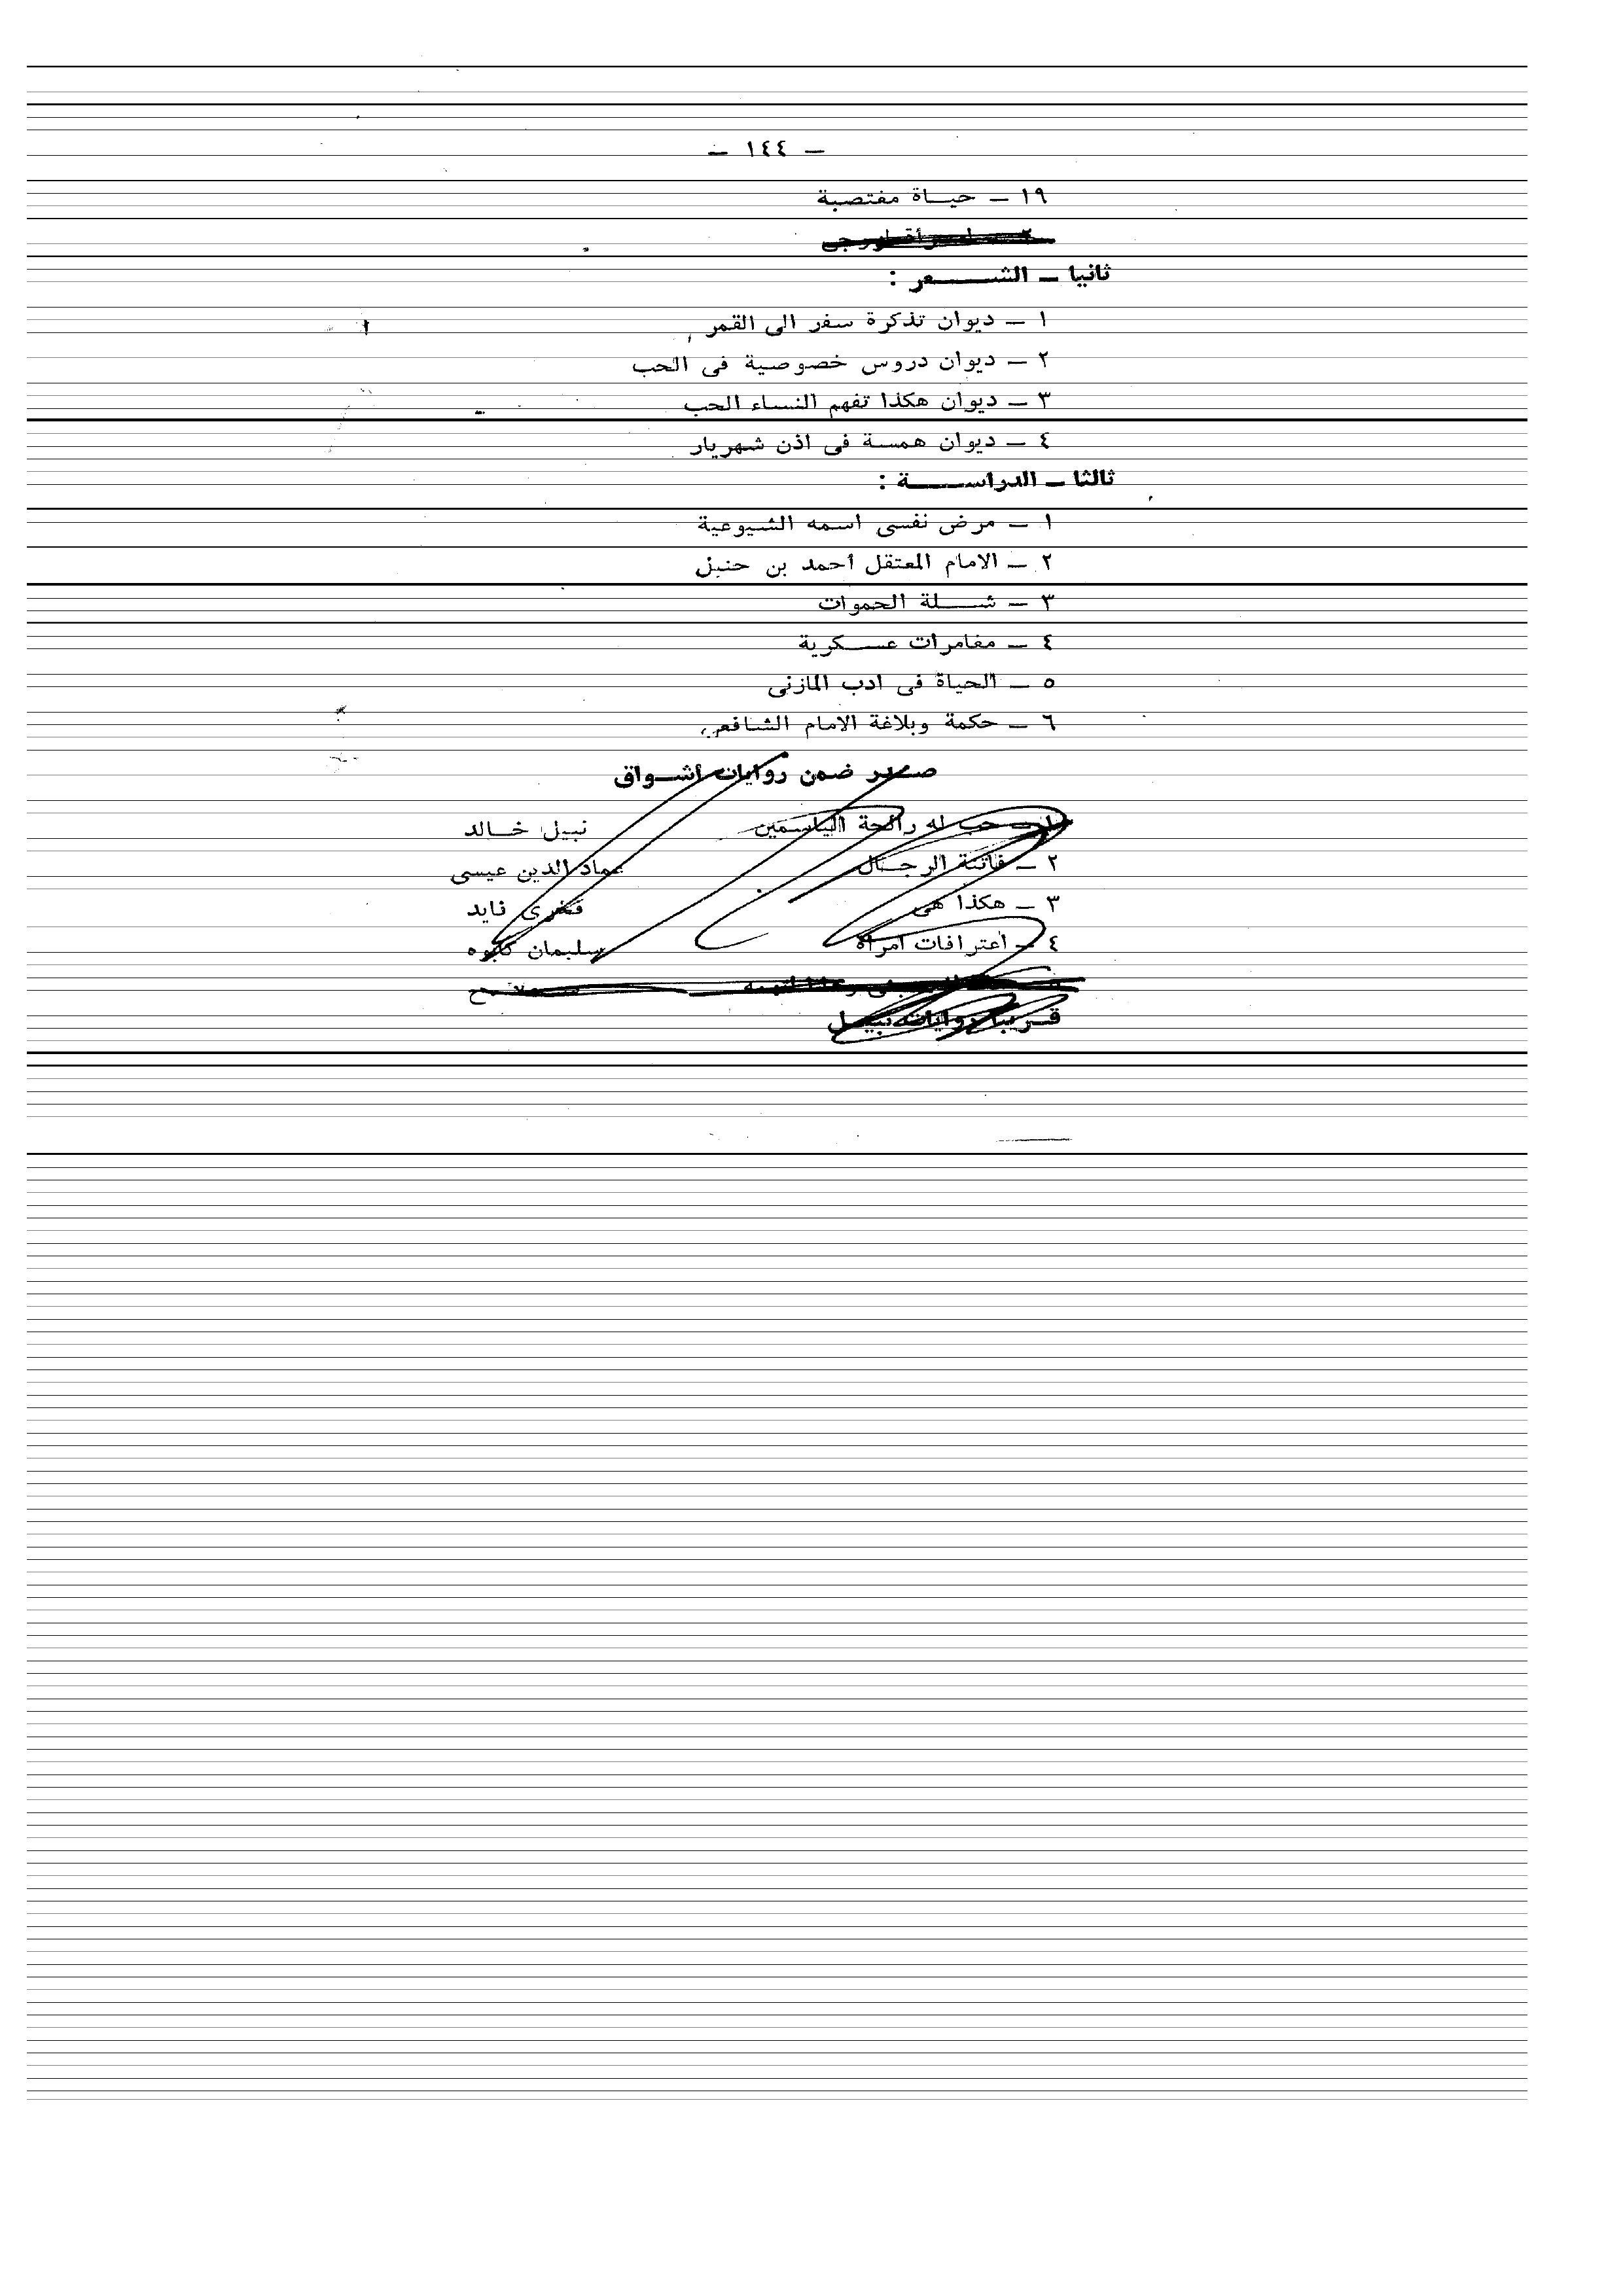 — ١٤٤ —
١٩ — حيـــاة مغتصبة
ثانيا — الشـــــــعر :
١ — ديوان تذكرة سفر الى القمر
٢ — ديوان دروس خصوصية فى الحب
٣ — ديوان هكذا تفهم النساء الحب
٤ — ديوان همسة فى اذن شهريار
ثالثا — الدراســـــــة :
١ — مرض نفسى اسمه الشيوعية
٢ — الامام المعتقل أحمد بن حنبل
٣ — شـــــلة الحموات
٤ — مغامرات عســـكرية
٥ — الحياة فى ادب المازنى
٦ — حكمة وبلاغة الامام الشافعى
صـدر ضمن روايات أشـــواق
١ — حب له رائحة الياسمين نبيل خـــالد
٢ — فاتنة الرجـــال عماد الدين عيسى
٣ — هكذا هى فخرى فايد
٤ — اعترافات امرأة سليمان
قـــريبا روايات نبيـــل